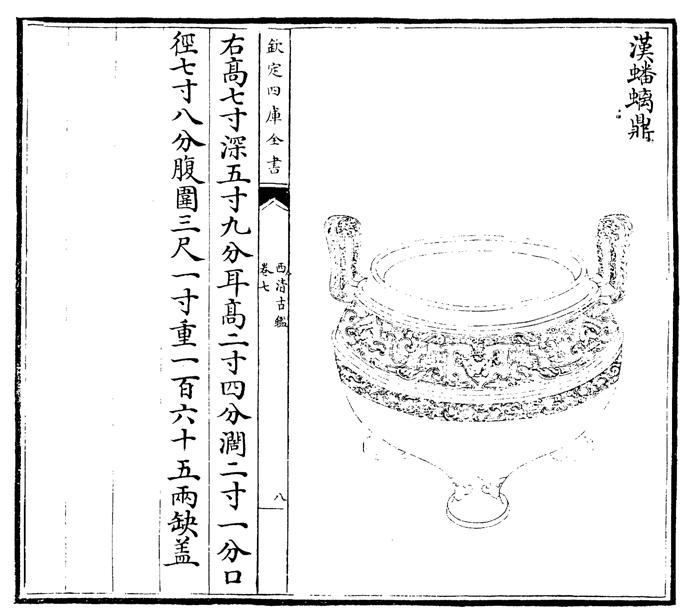 漢蟠螭鼎
欽定四庫全書
西清古鑑
卷七
八
右高七寸深五寸九分耳高二寸四分濶二寸一分口
徑七寸八分腹圍三尺一寸重一百六十五兩缺盖